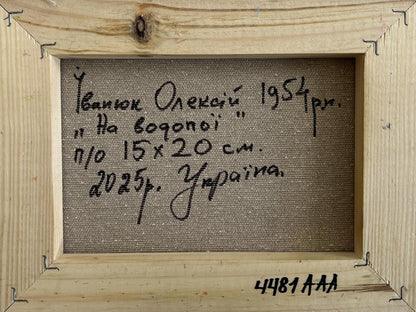 Іванюк Олексій 1954 рн.
„На водопої"
п/о 15×20 см.
2025р. Україна.
4481AAA